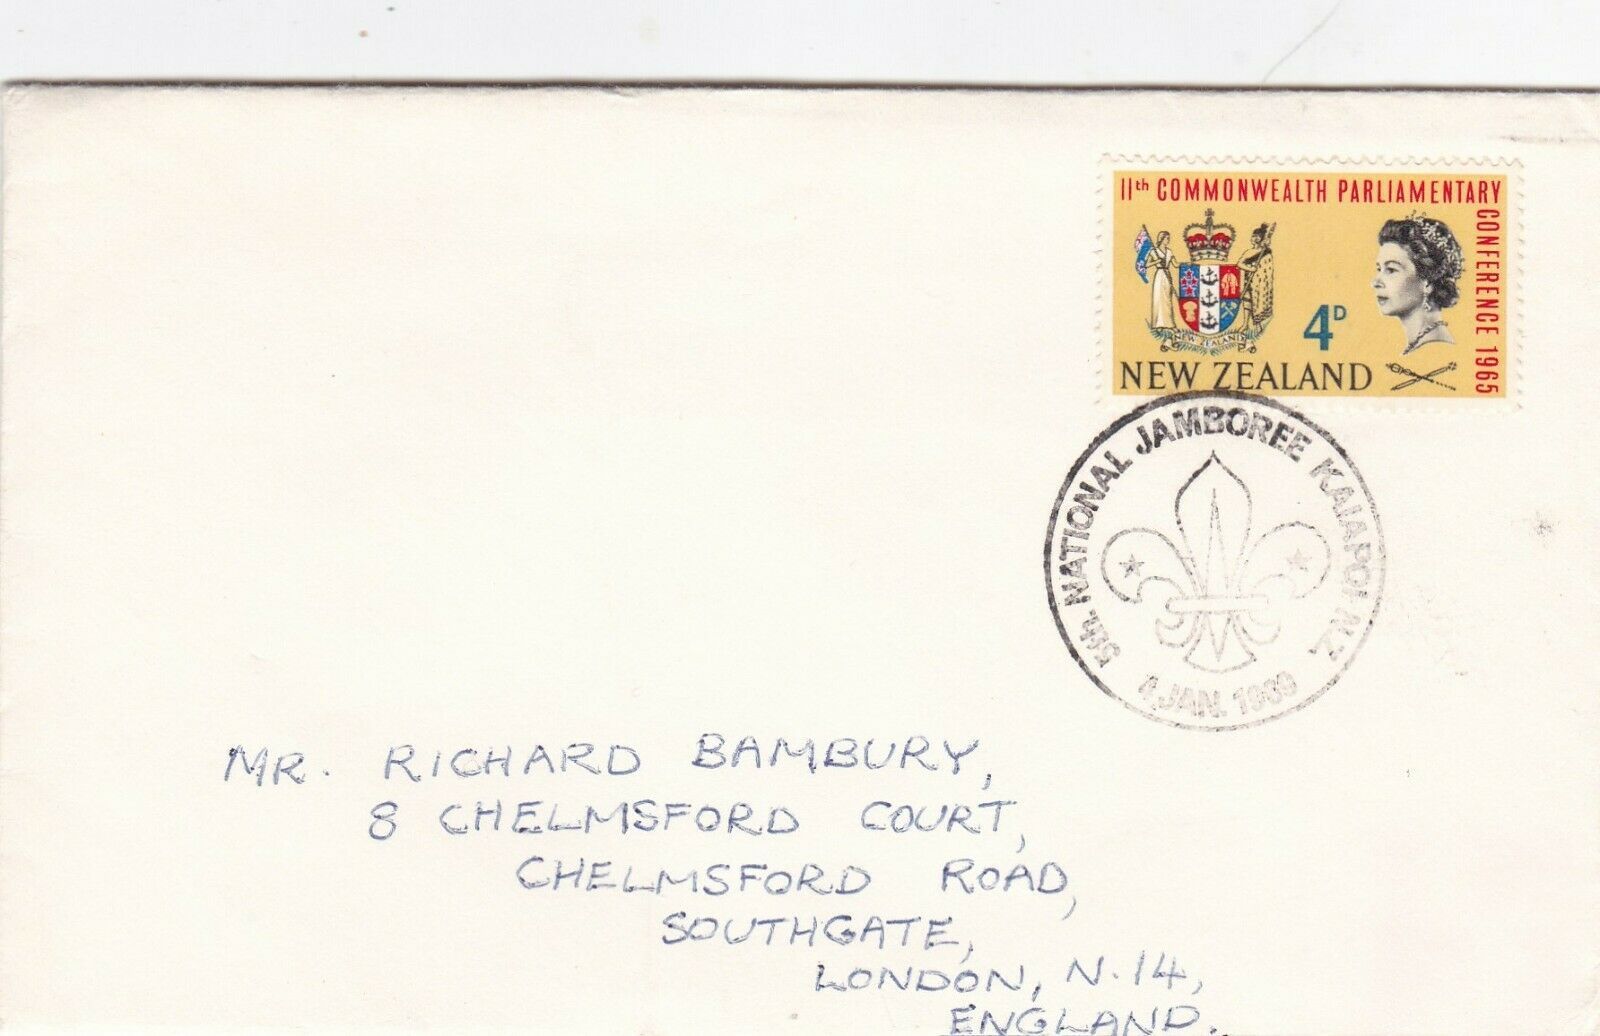 11th COMMONWEALTH PARLIAMENTARY
CONFERENCE 1965
NEW ZEALAND
4D
NEW ZEALAND
5th. NATIONAL JAMBOREE KAIAPOI N.Z.
JAN.
MR. RICHARD BAMBURY,
8 CHELMSFORD COURT,
CHELMSFORD ROAD,
SOUTHGATE,
LONDON, N.14,
ENGLAND.